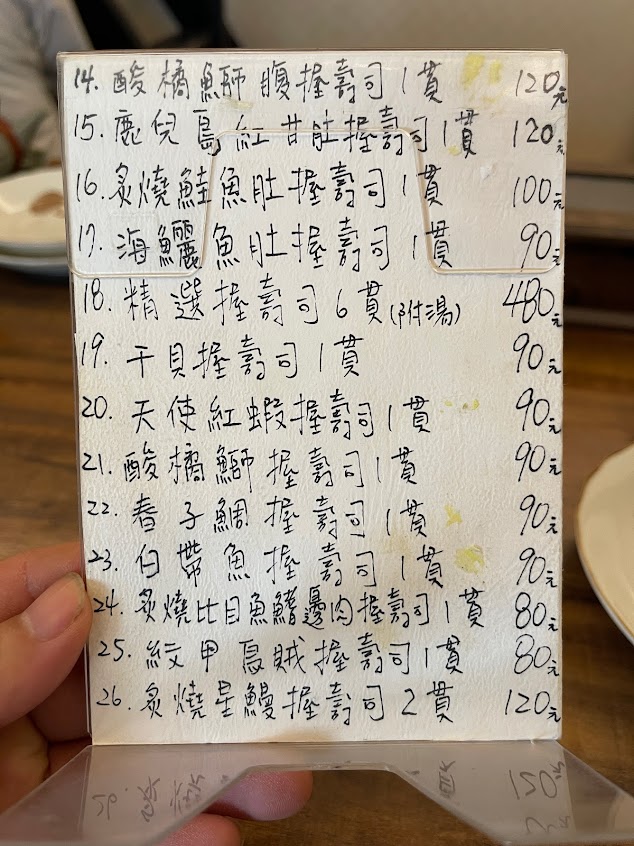 14. 酸橘鰤腹握壽司1貫 120元
15. 鹿兒島紅甘肚握壽司1貫 120元
16. 炙燒鮭魚肚握壽司1貫 100元
17. 海鱺魚肚握壽司1貫 90元
18. 精選握壽司6貫(附湯) 480元
19. 干貝握壽司1貫 90元
20. 天使紅蝦握壽司1貫 90元
21. 酸橘鰤握壽司1貫 90元
22. 春子鯛握壽司1貫 90元
23. 白帶魚握壽司1貫 90元
24. 炙燒比目魚鰭邊肉握壽司1貫 80元
25. 紋甲烏賊握壽司1貫 80元
26. 炙燒星鰻握壽司2貫 120元